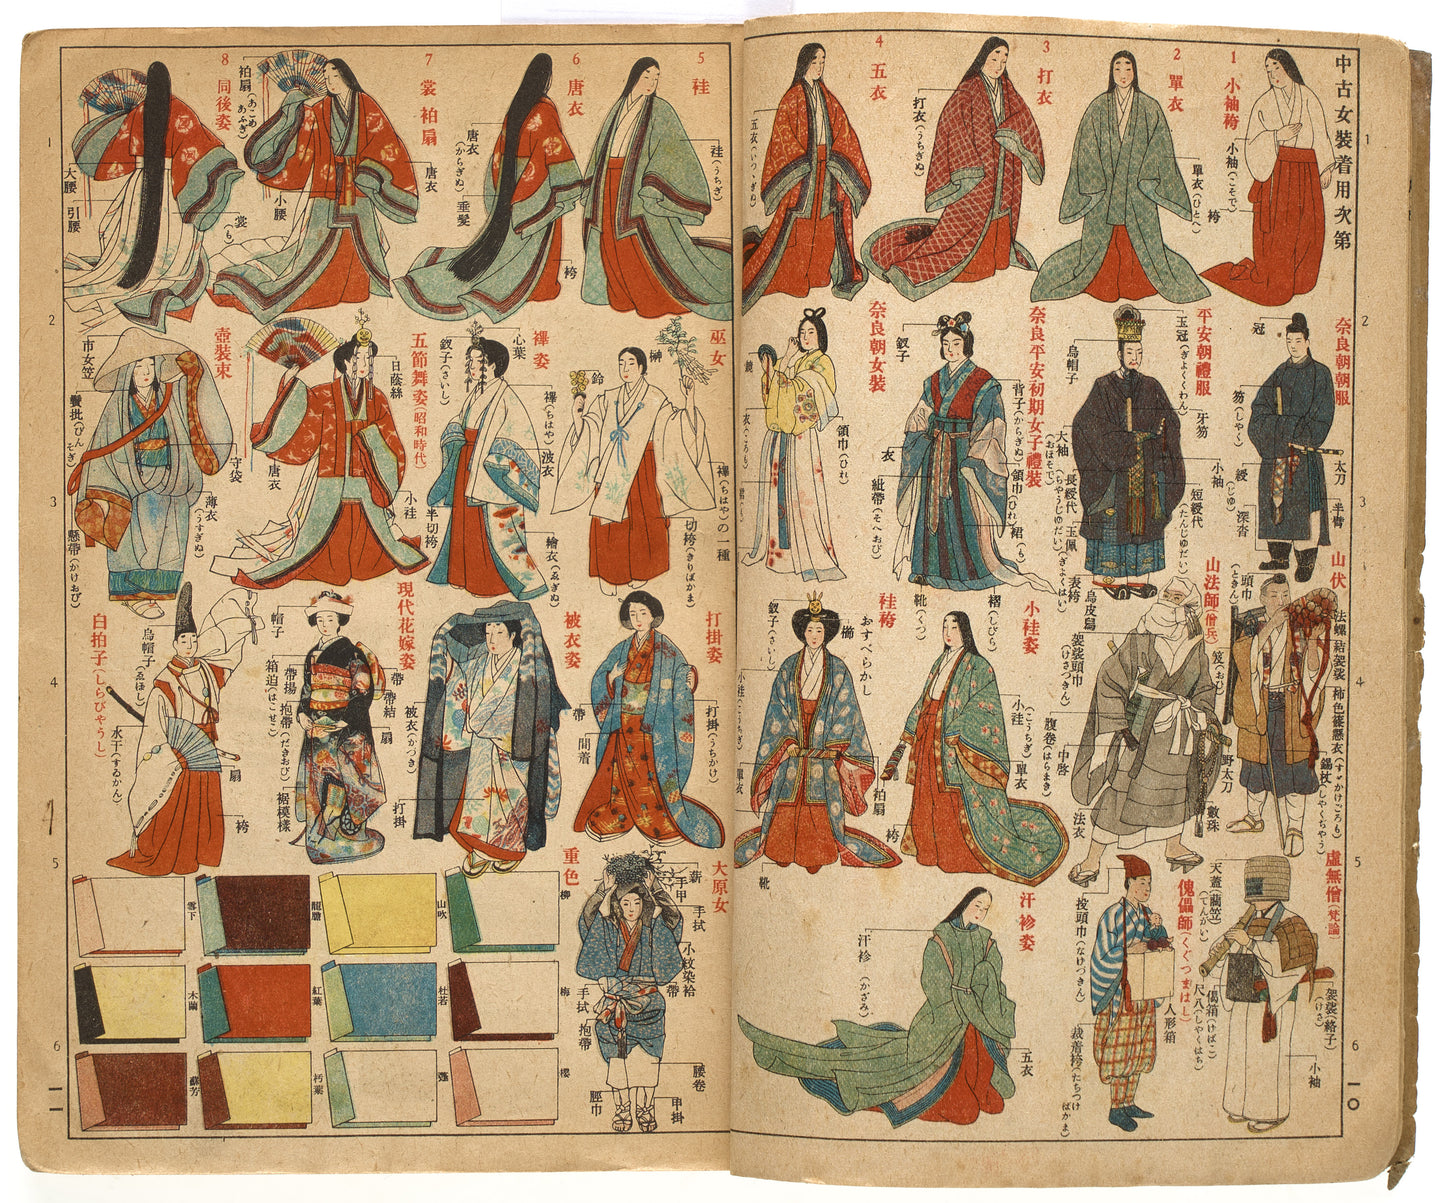 中古女裝着用次第
1
小袖袴
小袖(こそで)
袴
2
單衣
單衣(ひとへ)
3
打衣
打衣(うちぎぬ)
4
五衣
五衣(いつゝぎぬ)
5
袿
袿(うちぎ)
袴
6
唐衣
唐衣(からぎぬ)
垂髮
7
裳 袙扇
袙扇(あこめあふぎ)
唐衣
小腰
裳(も)
8
同後姿
大腰
引腰
奈良朝朝服
冠
笏(しやく)
綬(じゆ)
深沓
太刀
半臂
平安朝禮服
玉冠(ぎよくくわん)
烏帽子
牙笏
大袖(おほそで)
小袖
長綬代(ちやうじゆだい)
短綬代(たんじゆだい)
玉佩(ぎよくはい)
表袴
烏皮舄
奈良平安初期女子禮裝
釵子
背子(からぎぬ)
領巾(ひれ)
衣
紕帶(そへおび)
裙(も)
褶(しびら)
靴(くつ)
奈良朝女裝
領巾(ひれ)
衣(ころも)
巫女
榊
鈴
襷(ちはや)の一種
切袴(きりばかま)
襷姿
心葉
釵子(さいし)
襷(ちはや)
波衣
繪衣(ゑぎぬ)
半切袴
五節舞姿(昭和時代)
日蔭絲
唐衣
小袿
壺裝束
市女笠
鬢批(びんそぎ)
守袋
薄衣(うすぎぬ)
懸帶(かけおび)
山伏
頭巾(ときん)
法螺
結袈裟
柿色篠懸衣(すゞかけごろも)
笈(おひ)
錫杖(しやくぢやう)
山法師(僧兵)
袈裟頭巾(けさづきん)
腹卷(はらまき)
中啓
野太刀
法衣
數珠
小袿姿
小袿(こうちぎ)
單衣
袴
袿袴
おすべらかし
釵子(さいし)
櫛
小袿(こうちぎ)
單衣
袙扇
靴
打掛姿
打掛(うちかけ)
帶
間着
被衣姿
被衣(かつぎ)
打掛
現代花嫁姿
帽子
帶
帶結
帶揚
扇
箱迫(はこせこ)
抱帶(だきおび)
裾模樣
白拍子(しらびやうし)
烏帽子(ゑぼし)
水干(すゐかん)
扇
袴
虛無僧(梵論)
天蓋(藺笠)(てんがい)
袈裟(絡子)(けさ)
偈箱(けばこ)
尺八(しやくはち)
小袖
傀儡師(くぐつまはし)
投頭巾(なげづきん)
人形箱
裁着袴(たちつけばかま)
汗衫姿
汗衫(かざみ)
五衣
大原女
薪
手甲
手拭
小紋染袷
帶
手拭
抱帶
腰卷
脛巾
甲掛
重色
柳
山吹
龍膽
雪下
梅
杜若
紅葉
木蘭
櫻
朽葉
蘇芳
1
2
3
4
5
6
一〇
1
2
3
4
5
6
一一